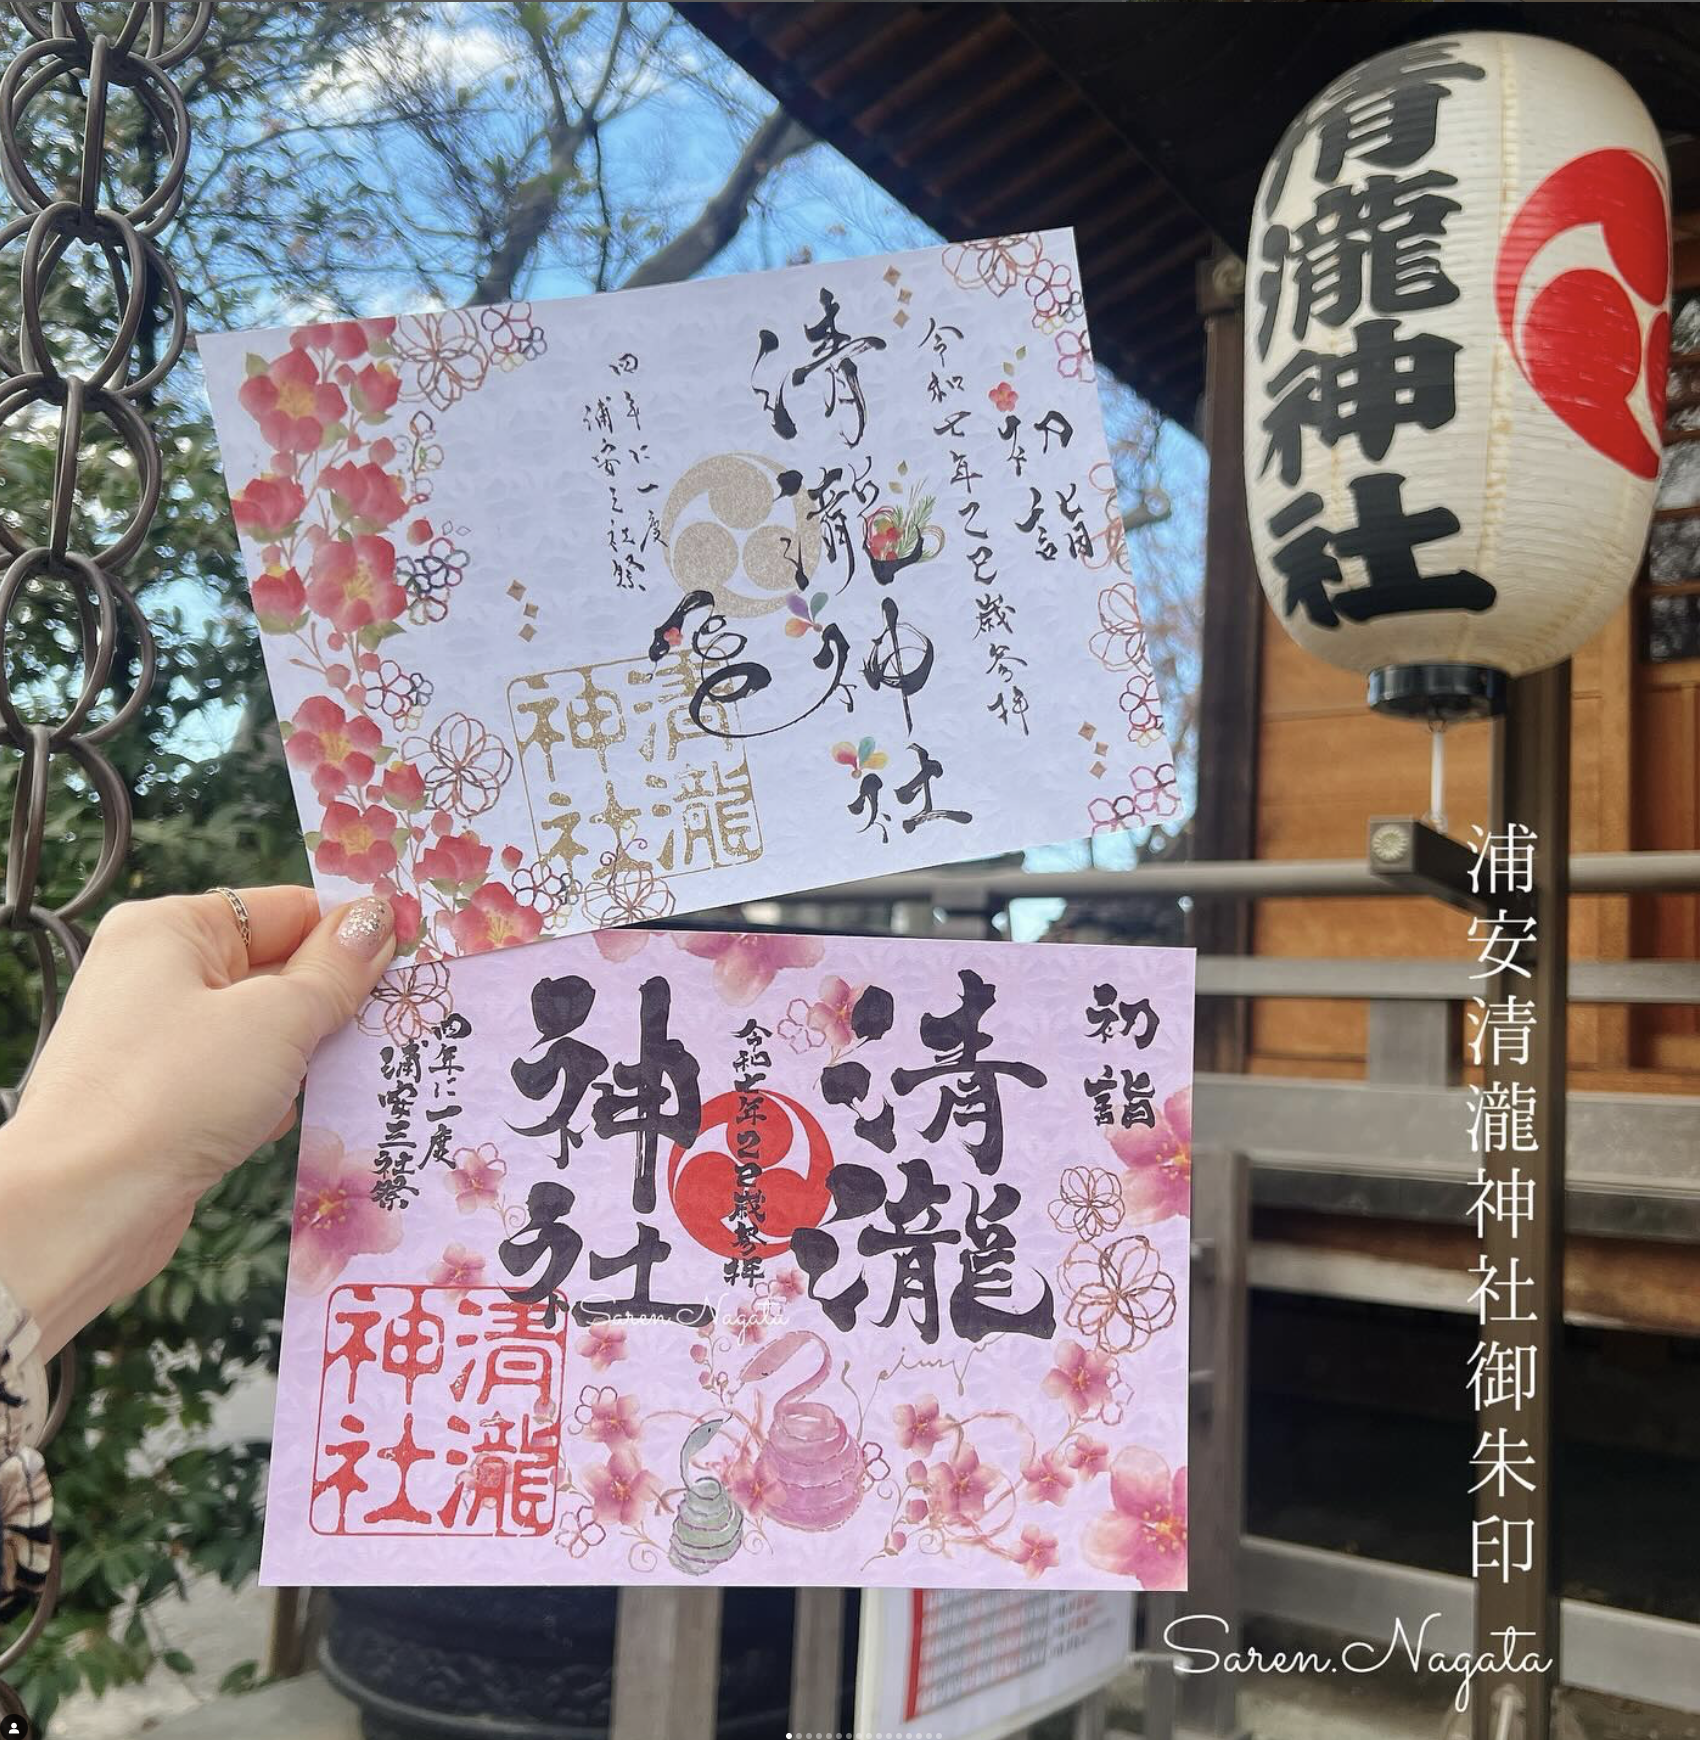 清瀧神社
初詣
令和七年乙巳歳参拝
清瀧神社
四年に一度
浦安三社祭
清瀧
神社
初詣
清瀧
令和七年乙巳歳参拝
神社
四年に一度
浦安三社祭
清瀧
神社
Saren.Nagata
浦安清瀧神社御朱印
Saren.Nagata